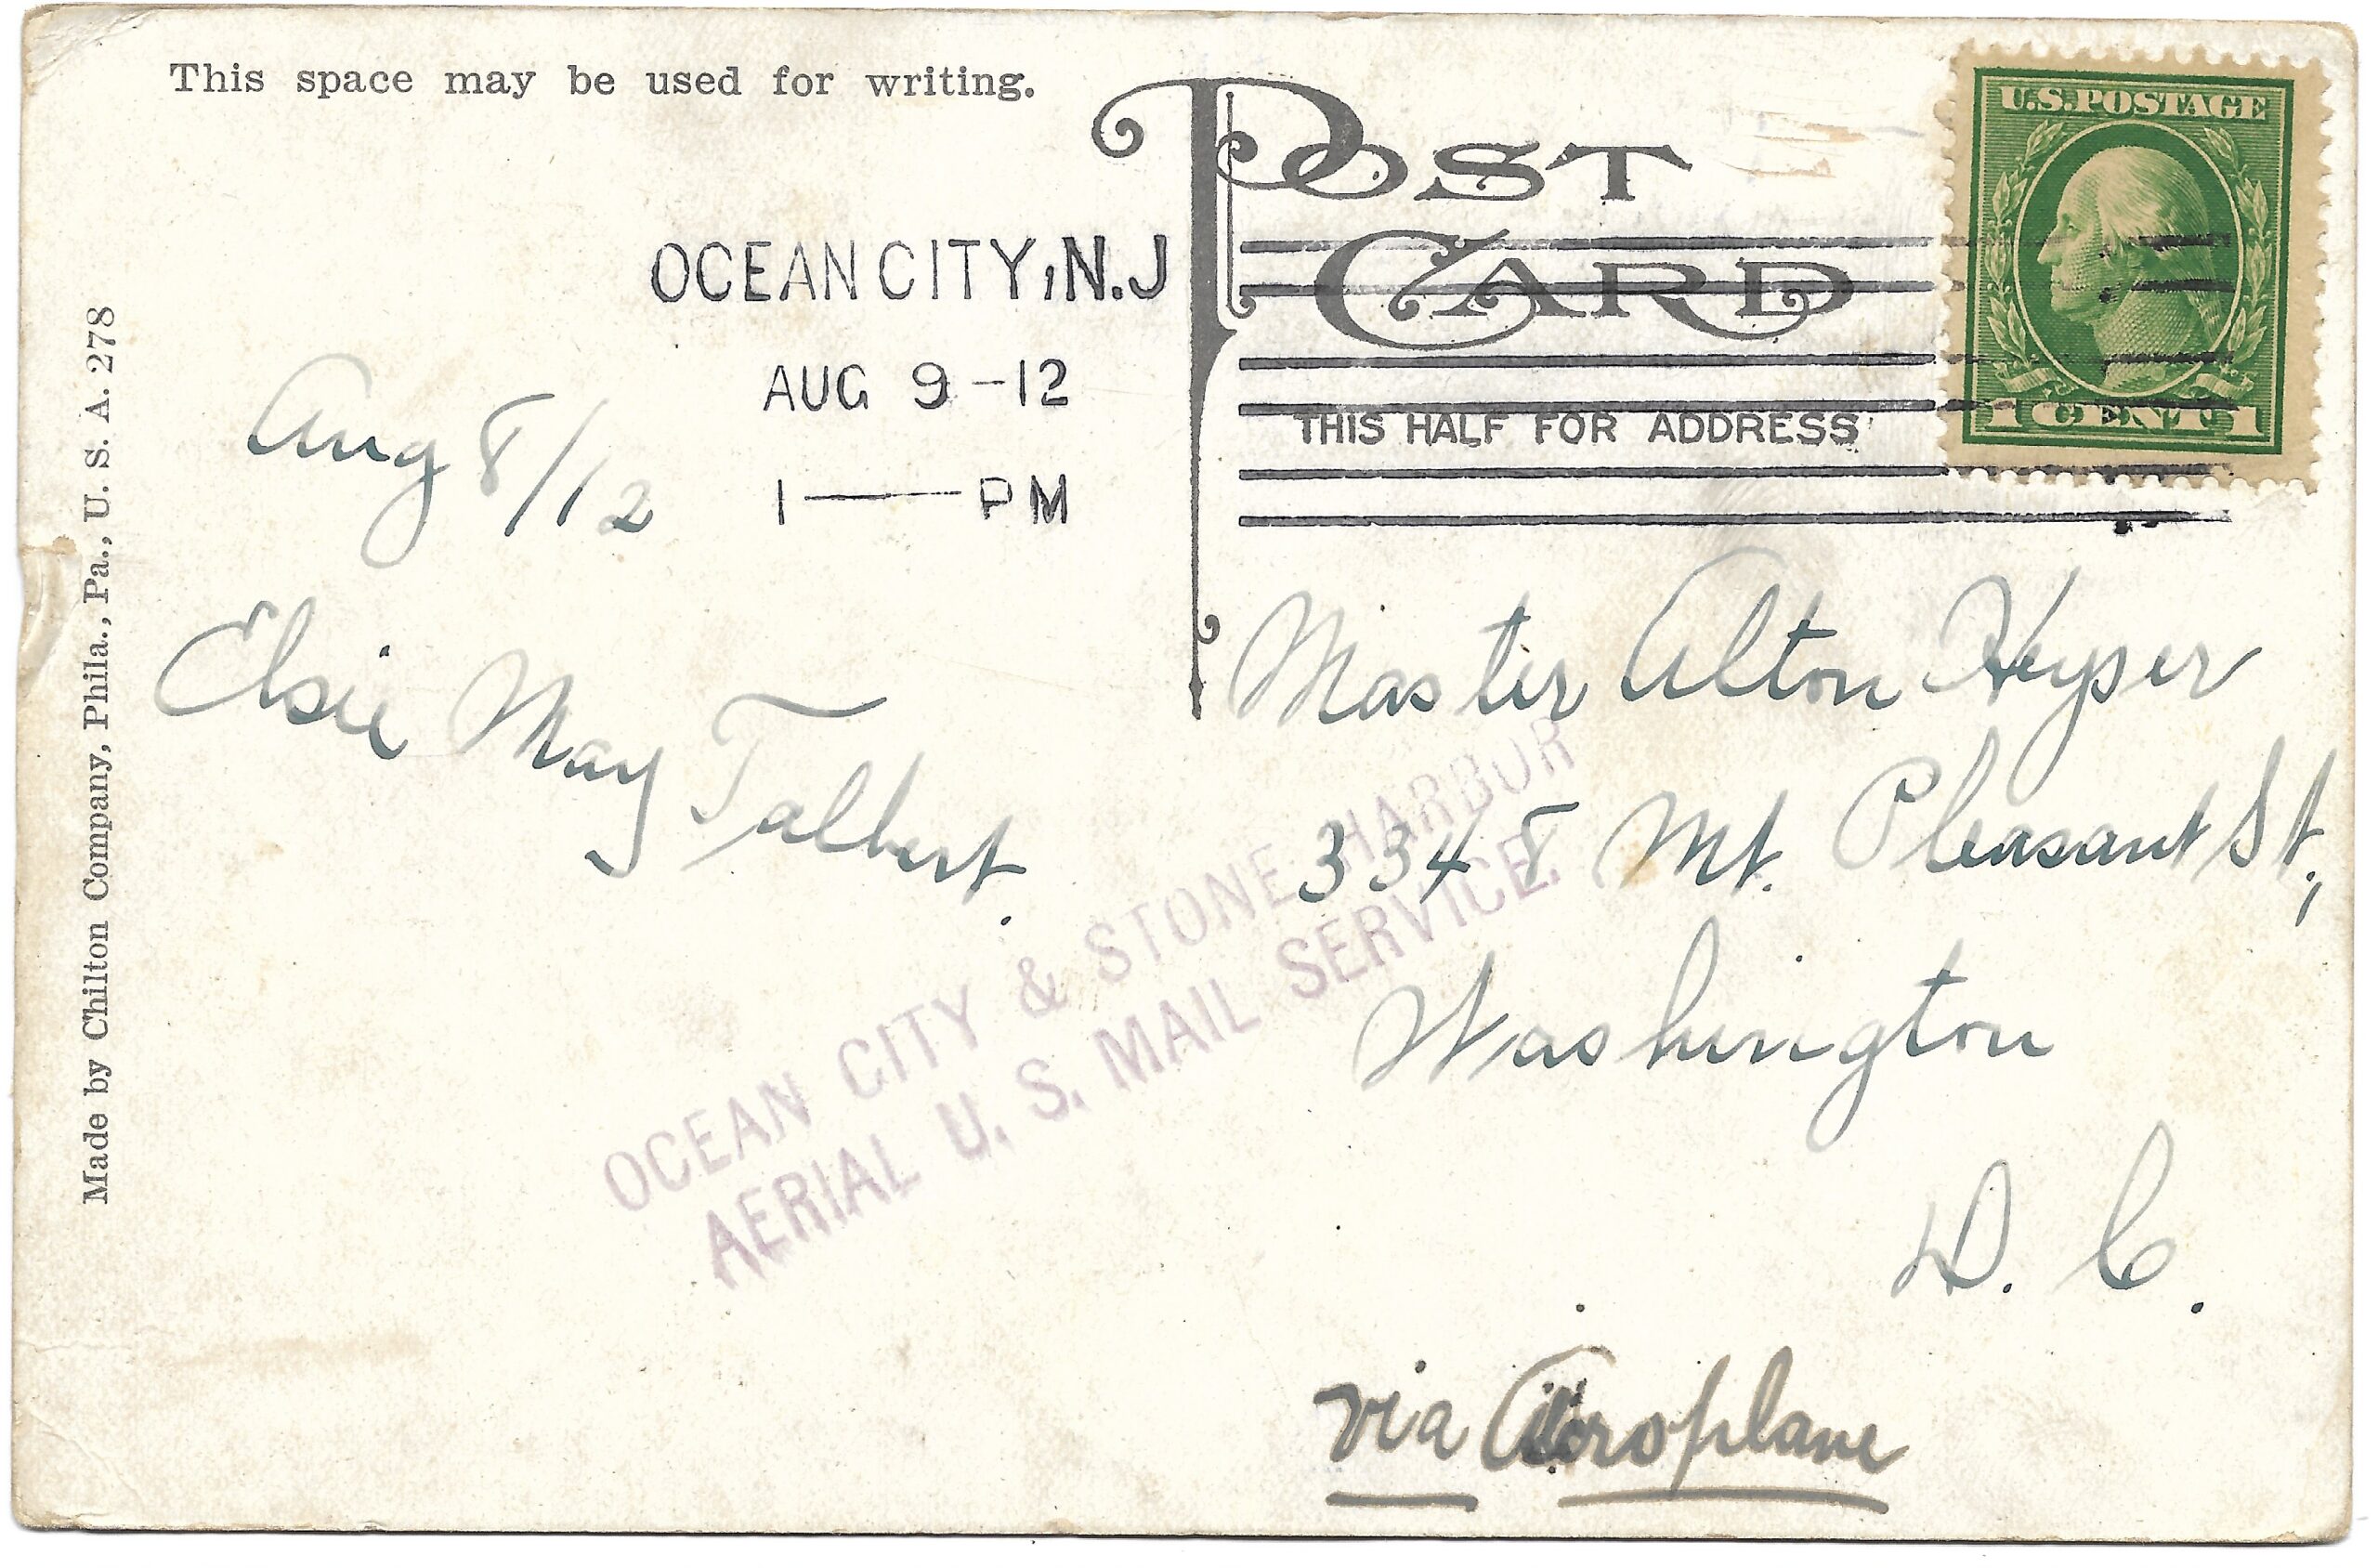 This space may be used for writing.
POST
CARD
THIS HALF FOR ADDRESS
U.S. POSTAGE
1 CENT 1
OCEAN CITY, N.J
AUG 9 - 12
1 — PM
Aug 8/12
Elsie May Talbert.
Master Alton Heyser
3348 Mt. Pleasant St.,
Washington
D. C.
via Aeroplane
OCEAN CITY & STONE HARBOR
AERIAL U. S. MAIL SERVICE.
Made by Chilton Company, Phila., Pa., U. S. A. 278